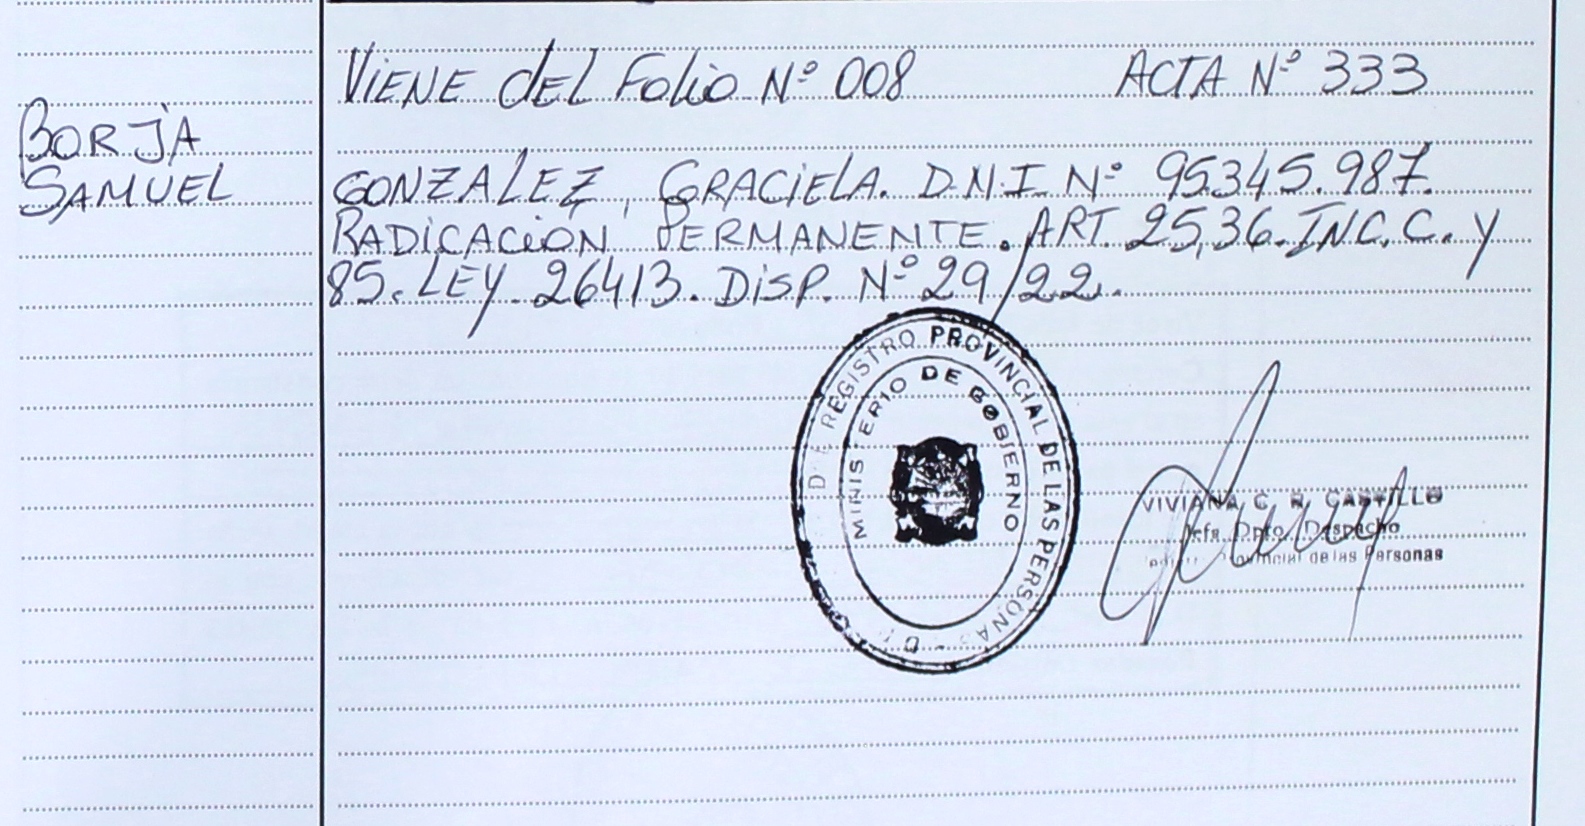 VIENE DEL FOLIO Nº 008 ACTA Nº 333
BORJA
SAMUEL
GONZALEZ, GRACIELA. D.N.I Nº 95.345.987.
RADICACIÓN PERMANENTE. ART. 25,36. INC. C. Y
85. LEY. 26413. DISP. Nº 29/22.
REGISTRO PROVINCIAL DE LAS PERSONAS
MINISTERIO DE GOBIERNO
VIVIANA C. R. CASTILLO
Jefa Dpto. Despacho
Provincial de las Personas